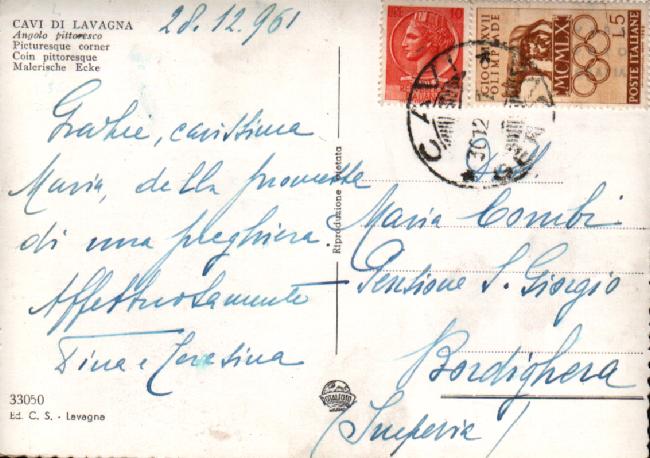 CAVI DI LAVAGNA
Angolo pittoresco
Picturesque corner
Coin pittoresque
Malerische Ecke
28.12.961
Grazie, carissima
Maria, della promessa
di una preghiera
Affettuosamente
Tina e Teresina
33050
Ed. C. S. - Lavagna
Riproduzione vietata
ITALFOTO
10
GIOCHI XVII
OLIMPIADE
MCMLX
L5
POSTE ITALIANE
30 12
Maria Combi
Pensione S. Giorgio
Bordighera
(Imperia)